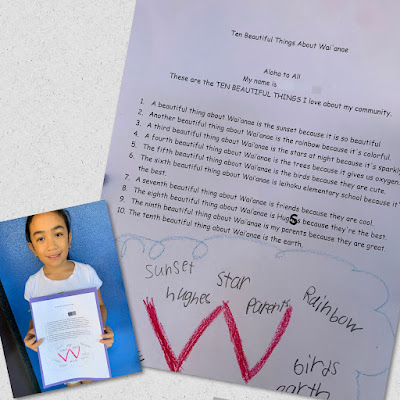 Ten Beautiful Things About Wai'anae
Aloha to All
My name is
These are the TEN BEAUTIFUL THINGS I love about my community.
1. A beautiful thing about Wai'anae is the sunset because it is so beautiful
2. Another beautiful thing about Wai'anae is the rainbow because it's colorful.
3. A third beautiful thing about Wai'anae is the stars at night because it's sparkly
4. A fourth beautiful thing about Wai'anae is the trees because it gives us oxygen.
5. The fifth beautiful thing about Wai'anae is the birds because they are cute.
6. The sixth beautiful thing about Wai'anae is leihoku elementary school because it'
the best.
7. A seventh beautiful thing about Wai'anae is friends because they are cool.
8. The eighth beautiful thing about Wai'anae is HugSs because they're the best.
9. The ninth beautiful thing about Wai'anae is my parents because they are great.
10. The tenth beautiful thing about Wai'anae is the earth.
sunset star Rainbow
hughes parents
W
birds
earth